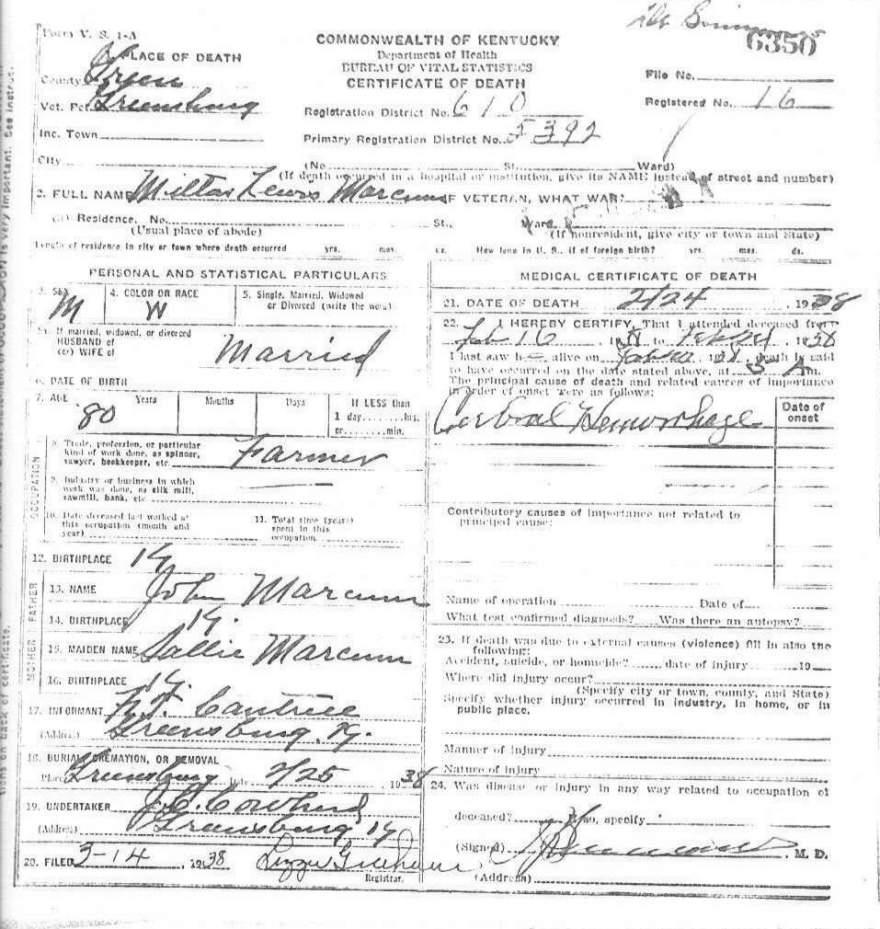 Form V. S. 1-A
6350
PLACE OF DEATH
COMMONWEALTH OF KENTUCKY
Department of Health
BUREAU OF VITAL STATISTICS
CERTIFICATE OF DEATH
County Green
File No.
Vot. Greensburg
Registration District No. 610
Registered No. 16
Inc. Town
Primary Registration District No. 5392
City
(No. St. Ward)
(If death occurred in a hospital or institution, give its NAME instead of street and number)
2. FULL NAME Milton Lewis Marcum IF VETERAN, WHAT WAR?
(a) Residence. No. St., Ward
(Usual place of abode) (If nonresident, give city or town and State)
Length of residence in city or town where death occurred yrs. mos. How long in U. S., if of foreign birth? yrs. mos. ds.
PERSONAL AND STATISTICAL PARTICULARS
3. SEX M
4. COLOR OR RACE W
5. Single, Married, Widowed
or Divorced (write the word)
If married, widowed, or divorced
HUSBAND of
(or) WIFE of
Married
6. DATE OF BIRTH
7. AGE 80 Years Months Days If LESS than
1 day........hrs.
or........min.
OCCUPATION
8. Trade, profession, or particular
kind of work done, as spinner,
sawyer, bookkeeper, etc. Farmer
9. Industry or business in which
work was done, as silk mill,
sawmill, bank, etc
10. Date deceased last worked at
this occupation (month and
year)
11. Total time (years)
spent in this
occupation
12. BIRTHPLACE Ky
FATHER
13. NAME John Marcum
14. BIRTHPLACE Ky.
MOTHER
15. MAIDEN NAME Sallie Marcum
16. BIRTHPLACE Ky.
17. INFORMANT
(Address) Greensburg, Ky.
18. BURIAL, CREMATION, OR REMOVAL
Place Greensburg Date 2/25 1938
19. UNDERTAKER J.C. Cowherd
(Address) Greensburg Ky
20. FILED 3-14 1938 Lizzie Graham,
Registrar.
MEDICAL CERTIFICATE OF DEATH
21. DATE OF DEATH 2/24 1938
22. I HEREBY CERTIFY, That I attended deceased from
Feb 16 to 1938
I last saw h alive on death is said
to have occurred on the date stated above, at 5 A m.
The principal cause of death and related causes of importance
in order of onset were as follows:
Date of
onset
Cerbral Hemorrhage
Contributory causes of importance not related to
principal cause:
Name of operation Date of
What test confirmed diagnosis? Was there an autopsy?
23. If death was due to external causes (violence) fill in also the
following:
Accident, suicide, or homicide? date of injury 19
Where did injury occur?
(Specify city or town, county, and State)
Specify whether injury occurred in industry, in home, or in
public place.
Manner of injury
Nature of injury
24. Was disease or injury in any way related to occupation of
deceased? If so, specify
(Signed) M. D.
(Address)